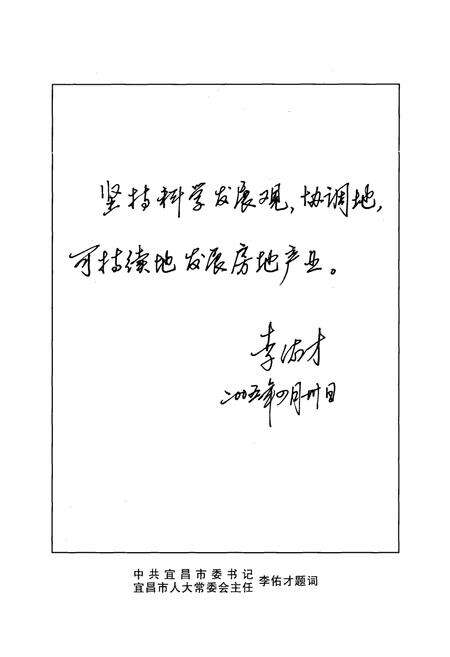 坚持科学发展观,协调地,
可持续地发展房地产业。
李佑才
二〇〇五年四月卅日
中共宜昌市委书记
宜昌市人大常委会主任 李佑才题词